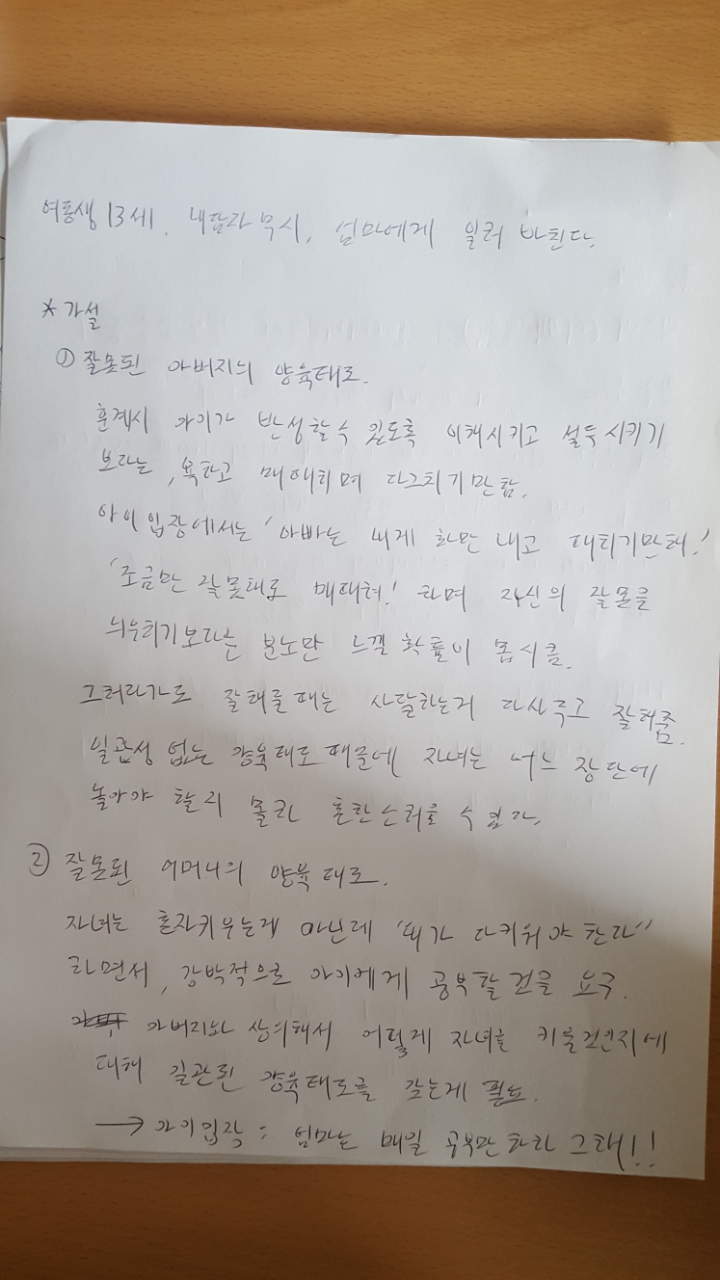 여동생 13세. 내담자 무시, 엄마에게 일러 바친다.
* 가설
① 잘못된 아버지의 양육태도.
훈계시 아이가 반성할수 있도록 이해시키고 설득시키기
보다는, 욕하고 매대히며 다그치기만함.
아이입장에서는 '아빠는 내게 화만 내고 때리기만해!'
'조금만 잘못해도 매대해!' 하며 자신의 잘못을
뉘우치기보다는 분노만 느낄 확률이 몹시큼.
그러다가도 잘해줄때는 사달하는거 다사주고 잘해줌.
일관성 없는 양육태도때문에 자녀는 어느 장단에
놀아야 할지 몰라 혼란스러울 수 있다.
② 잘못된 어머니의 양육 태도.
자녀는 혼자키우는게 아닌데 "내가 다키워야 한다"
하면서, 강박적으로 아이에게 공부할 것을 요구.
아버지와 상의해서 어떻게 자녀를 키울것인지에
대해 일관된 양육태도를 갖는게 필요.
→ 아이입장 : 엄마는 매일 공부만하라 그래!!